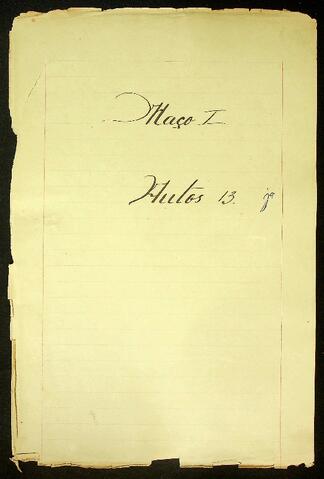 Maço I
Autos 13.